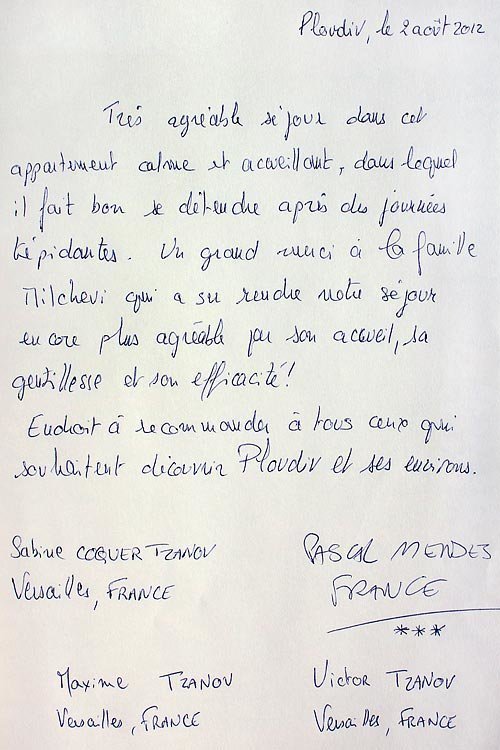 Plovdiv, le 2 août 2012
Très agréable séjour dans cet
appartement calme et accueillant, dans lequel
il fait bon se détendre après des journées
trépidantes. Un grand merci à la famille
Milchevi qui a su rendre notre séjour
encore plus agréable par son accueil, sa
gentillesse et son efficacité!
Endroit à recommander à tous ceux qui
souhaitent découvrir Plovdiv et ses environs.
Sabine COQUER TZANOV
Versailles, FRANCE
PASCAL MENDES
FRANCE
***
Maxime TZANOV
Versailles, FRANCE
Victor TZANOV
Versailles, FRANCE